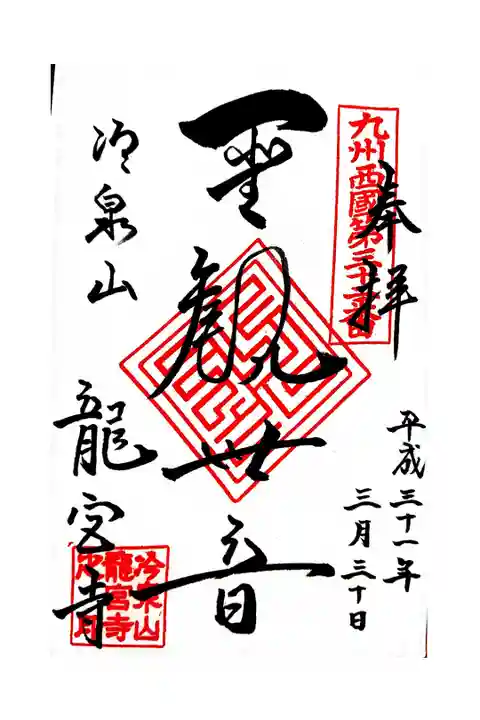 奉拝
九州西國第三十二番
平成三十一年
三月三十日
聖観世音
冷泉山
龍宮寺
冷泉山
龍宮寺